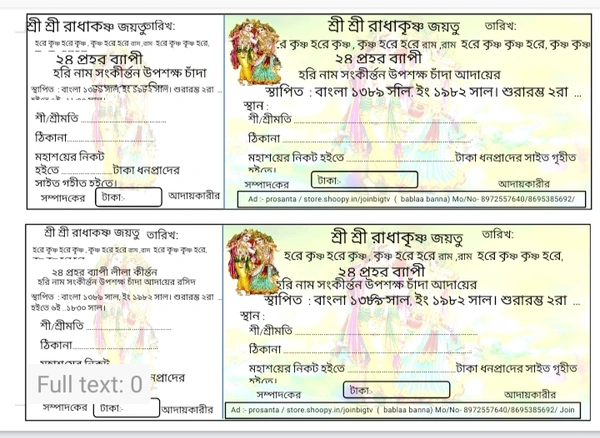 শ্রী শ্রী রাধাকৃষ্ণ জয়তু তারিখ:
হরে কৃষ্ণ হরে কৃষ্ণ , কৃষ্ণ হরে হরে রাম ,রাম হরে কৃষ্ণ কৃষ্ণ হরে,
২৪ প্রহর ব্যাপী
হরি নাম সংকীর্ত্তন উপশক্ষ চাঁদা
স্থাপিত : বাংলা ১৩৮৯ সাল, ইং ১৯৮২ সাল। শুরারম্ভ ২রা ...
শ্রী/শ্রীমতি
ঠিকানা
মহাশয়ের নিকট
হইতে টাকা ধন্যপ্রাদের
সাইত গৃহীত হইতে।
সম্পাদকের টাকা:- আদায়কারীর
শ্রী শ্রী রাধাকৃষ্ণ জয়তু তারিখ:
হরে কৃষ্ণ হরে কৃষ্ণ , কৃষ্ণ হরে হরে রাম ,রাম হরে কৃষ্ণ কৃষ্ণ হরে, কৃষ্ণ কৃষ্ণ
২৪ প্রহর ব্যাপী
হরি নাম সংকীর্ত্তন উপশক্ষ চাঁদা আদায়ের
স্থাপিত : বাংলা ১৩৮৯ সাল, ইং ১৯৮২ সাল। শুরারম্ভ ২রা ...
স্থান :
শ্রী/শ্রীমতি
ঠিকানা
মহাশয়ের নিকট হইতে টাকা ধন্যপ্রাদের সাইত গৃহীত
সম্পাদকের টাকা:- আদায়কারীর
Ad :- prosanta / store.shoopy.in/joinbigtv ( bablaa banna) Mo/No- 8972557640/8695385692/
শ্রী শ্রী রাধাকৃষ্ণ জয়তু তারিখ:
হরে কৃষ্ণ হরে কৃষ্ণ , কৃষ্ণ হরে হরে রাম ,রাম হরে কৃষ্ণ কৃষ্ণ হরে,
২৪ প্রহর ব্যাপী লীলা কীর্ত্তন
হরি নাম সংকীর্ত্তন উপশক্ষ চাঁদা আদায়ের রসিদ
স্থাপিত : বাংলা ১৩৮৯ সাল, ইং ১৯৮২ সাল। শুরারম্ভ ২রা ...
শ্রী/শ্রীমতি
ঠিকানা
Full text: 0
সম্পাদকের টাকা:- আদায়কারীর
শ্রী শ্রী রাধাকৃষ্ণ জয়তু তারিখ:
হরে কৃষ্ণ হরে কৃষ্ণ , কৃষ্ণ হরে হরে রাম ,রাম হরে কৃষ্ণ কৃষ্ণ হরে,
২৪ প্রহর ব্যাপী
হরি নাম সংকীর্ত্তন উপশক্ষ চাঁদা আদায়ের
স্থাপিত : বাংলা ১৩৮৯ সাল, ইং ১৯৮২ সাল। শুরারম্ভ ২রা ...
স্থান :
শ্রী/শ্রীমতি
ঠিকানা
মহাশয়ের নিকট হইতে টাকা ধন্যপ্রাদের সাইত গৃহীত
সম্পাদকের টাকা:- আদায়কারীর
Ad :- prosanta / store.shoopy.in/joinbigtv ( bablaa banna) Mo/No- 8972557640/8695385692/ Join